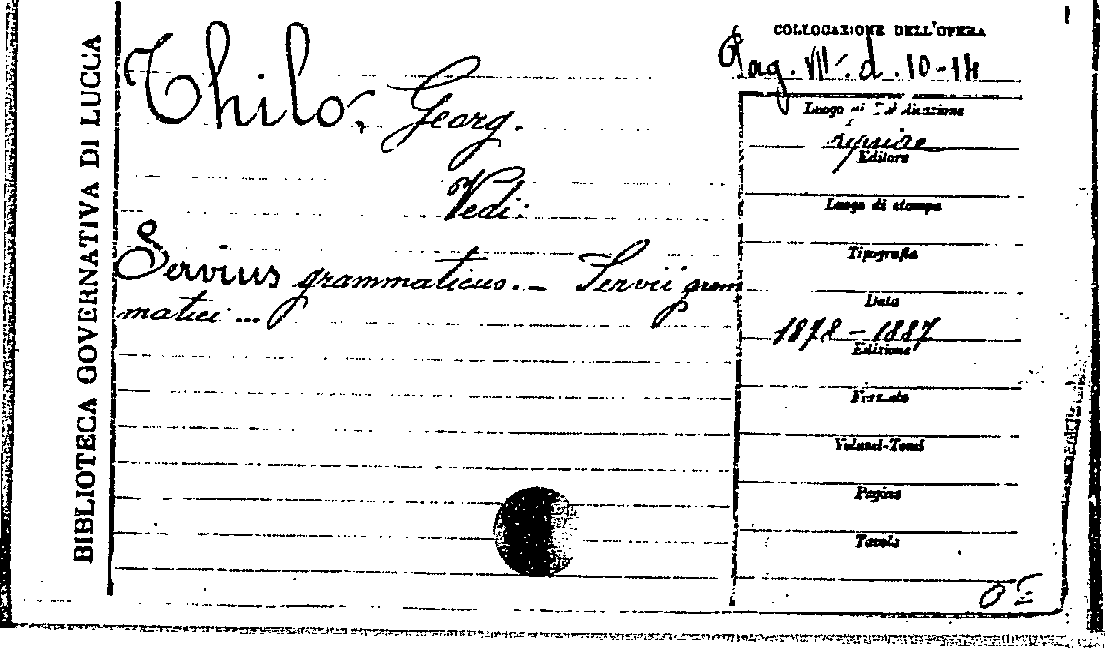 BIBLIOTECA GOVERNATIVA DI LUCCA
Thilo, Georg.
Vedi:
Servius grammaticus. — Servii gram
matici ...
COLLOCAZIONE DELL'OPERA
Pag. VII. d. 10-14
Luogo di Pubblicazione
Lipsiae
Editore
Luogo di stampa
Tipografia
Data
1878-1887
Edizione
Formato
Volumi-Tomi
Pagine
Tavole